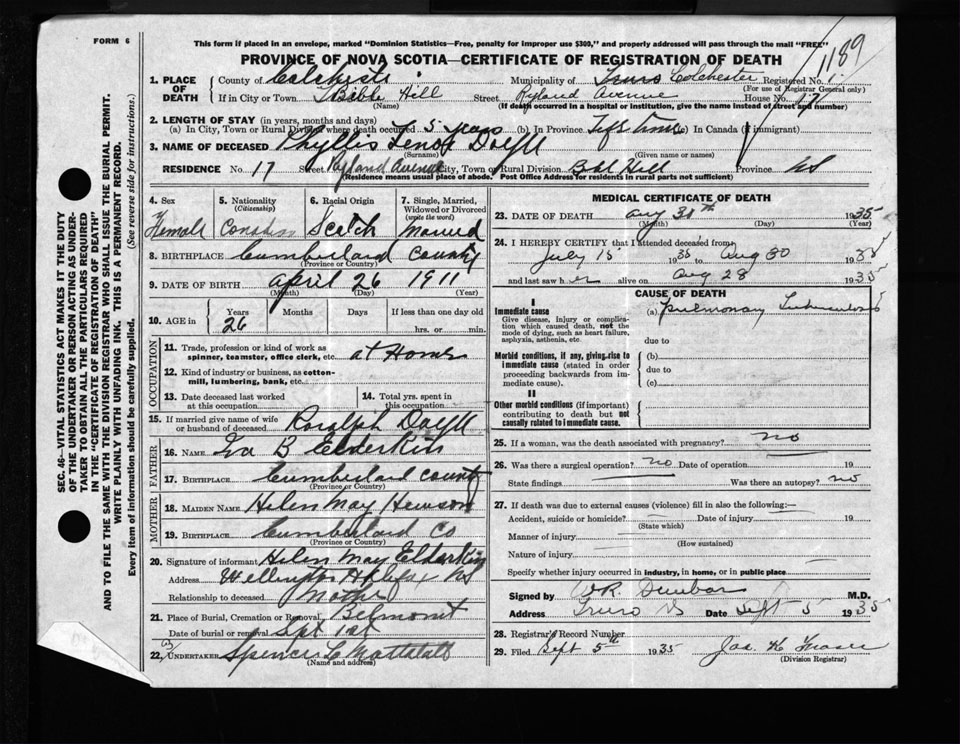 FORM 6
This form if placed in an envelope, marked "Dominion Statistics—Free, penalty for improper use $300," and properly addressed will pass through the mail "FREE"
PROVINCE OF NOVA SCOTIA—CERTIFICATE OF REGISTRATION OF DEATH
1189
1. PLACE OF DEATH County of Colchester Municipality of Truro Colchester Registered No.
(For use of Registrar General only)
If in City or Town Bible Hill Street Ryland Avenue House No. 17
(Name) (If death occurred in a hospital or institution, give the name instead of street and number)
2. LENGTH OF STAY (in years, months and days)
(a) In City, Town or Rural Division where death occurred 5 years (b) In Province Life time (c) In Canada (if immigrant)
3. NAME OF DECEASED Phyllis Doyle
(Surname) (Given name or names)
RESIDENCE No. 17 Street Ryland Avenue City, Town or Rural Division Bible Hill Province NS
(Residence means usual place of abode. Post Office Address for residents in rural parts not sufficient)
4. Sex 5. Nationality (Citizenship) 6. Racial Origin 7. Single, Married, Widowed or Divorced (write the word)
Female Canadian Scotch Married
8. BIRTHPLACE Cumberland County
(Province or Country)
9. DATE OF BIRTH April 26 1911
(Month) (Day) (Year)
10. AGE in Years Months Days If less than one day old
26 hrs. or min.
OCCUPATION
11. Trade, profession or kind of work as spinner, teamster, office clerk, etc. at Home
12. Kind of industry or business, as cotton-mill, lumbering, bank, etc.
13. Date deceased last worked at this occupation 14. Total yrs. spent in this occupation
15. If married give name of wife or husband of deceased Ralph Doyle
FATHER
16. NAME Ira B Elderkin
17. BIRTHPLACE Cumberland County
(Province or Country)
MOTHER
18. MAIDEN NAME Helen May Hewson
19. BIRTHPLACE Cumberland Co
(Province or Country)
20. Signature of informant Helen May Elderkin
Address Wellington Halifax NS
Relationship to deceased Mother
21. Place of Burial, Cremation or Removal Belmont
Date of burial or removal Sept 1st
22. UNDERTAKER Spencer C
(Name and address)
MEDICAL CERTIFICATE OF DEATH
23. DATE OF DEATH Aug 30th 1935
(Month) (Day) (Year)
24. I HEREBY CERTIFY that I attended deceased from
July 15 1935 to Aug 30 1935
and last saw her alive on Aug 28 1935
CAUSE OF DEATH
I
Immediate cause (a) Pulmonary Tuberculosis
Give disease, injury or complication which caused death, not the mode of dying, such as heart failure, asphyxia, asthenia, etc.
due to
Morbid conditions, if any, giving rise to immediate cause (stated in order proceeding backwards from immediate cause). (b)
due to
(c)
II
Other morbid conditions (if important) contributing to death but not causally related to immediate cause.
25. If a woman, was the death associated with pregnancy? no
26. Was there a surgical operation? no Date of operation 19
State findings Was there an autopsy? no
27. If death was due to external causes (violence) fill in also the following:—
Accident, suicide or homicide? Date of injury 19
(State which)
Manner of injury
(How sustained)
Nature of injury
Specify whether injury occurred in industry, in home, or in public place
Signed by WR Dunbar M.D.
Address Truro NS Date Sept 5 1935
28. Registrar's Record Number
29. Filed Sept 5th 1935 Jas. K Fraser
(Division Registrar)
SEC. 46—VITAL STATISTICS ACT MAKES IT THE DUTY
OF THE UNDERTAKER OR PERSON ACTING AS UNDERTAKER
TO OBTAIN ALL THE PARTICULARS REQUIRED
IN THE "CERTIFICATE OF REGISTRATION OF DEATH"
AND TO FILE THE SAME WITH THE DIVISION REGISTRAR WHO SHALL ISSUE THE BURIAL PERMIT.
WRITE PLAINLY WITH UNFADING INK. THIS IS A PERMANENT RECORD.
Every item of information should be carefully supplied. (See reverse side for instructions.)